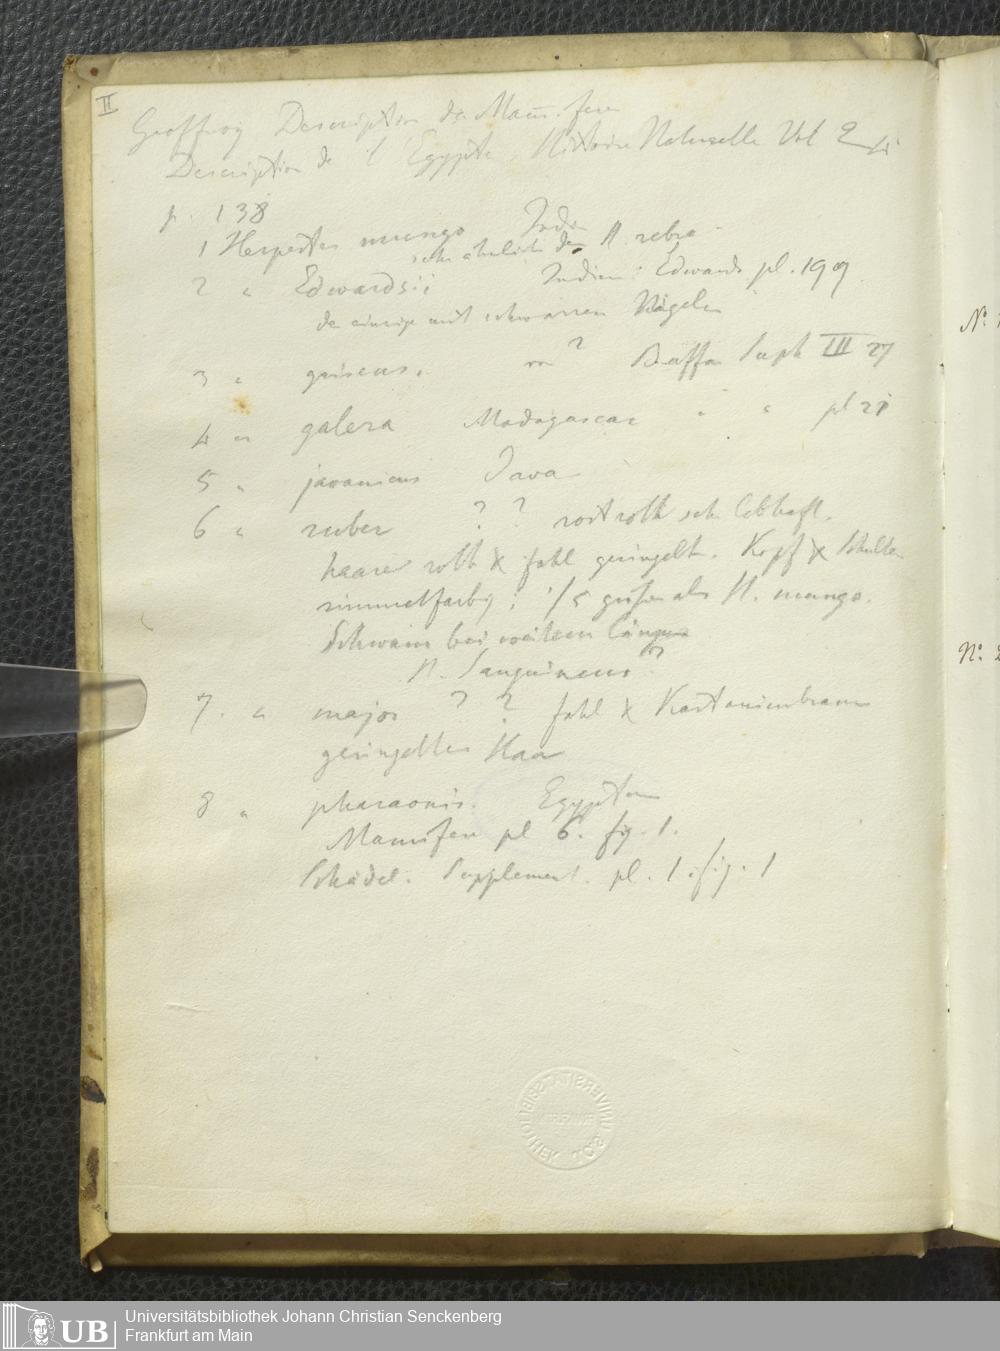 II
Geoffroy Description de Mam̄ifere
Description de l'Egypte Histoire Naturelle Vol 2
p. 138
1 Herpestes mungo Indien
sehr ähnlich dem H. zebra
2 " Edwardsii Indien: Edwards pl. 199
der einzige mit schwarzen Nägeln
3 " griseus. ? Buffon Suph III 27
4 " galera Madagascar " " pl 21
5 " javanicus Java
6 " ruber ? ? rostroth sehr lebhaft.
haare roth & fahl geringelt. Kopf & Schulter
zimmetfarbig; 1/5 größer als H. mungo.
Schwanz bei weitem länger
H. Sanguineus?
7. " major ? ? fahl & Kastanienbraun
geringeltes Haar
8 " pharaonis. Egypten
Mamifere pl 6. fig. 1.
Schädel. Supplement. pl. 1. fig. 1
Nº
Nº 2
UNIVERSITÄTSBIBLIOTHEK
UB
Universitätsbibliothek Johann Christian Senckenberg
Frankfurt am Main